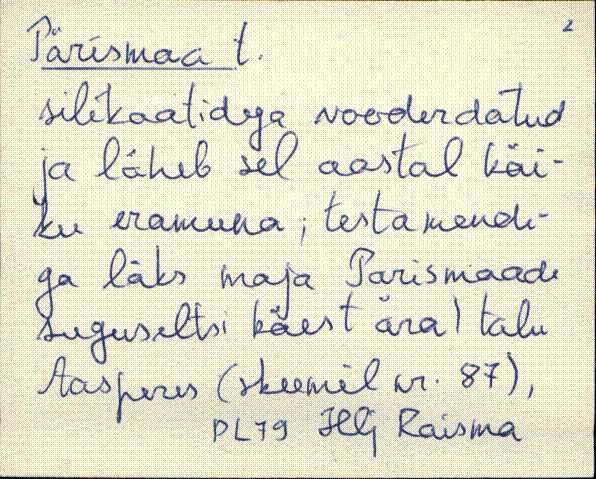 2
Pärismaa t.
silikaatidega vooderdatud
ja läheb sel aastal käi-
ku eramuna; testamendi-
ga läks maja Parismaade
suguseltsi käest ära! talu
Aasperes (skeemil nr. 87),
DL79 Raisma